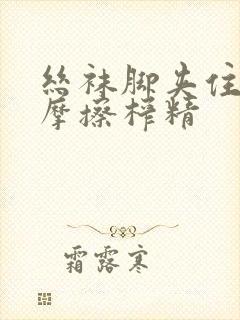 丝袜脚夹住
摩擦榨精
霜露寒